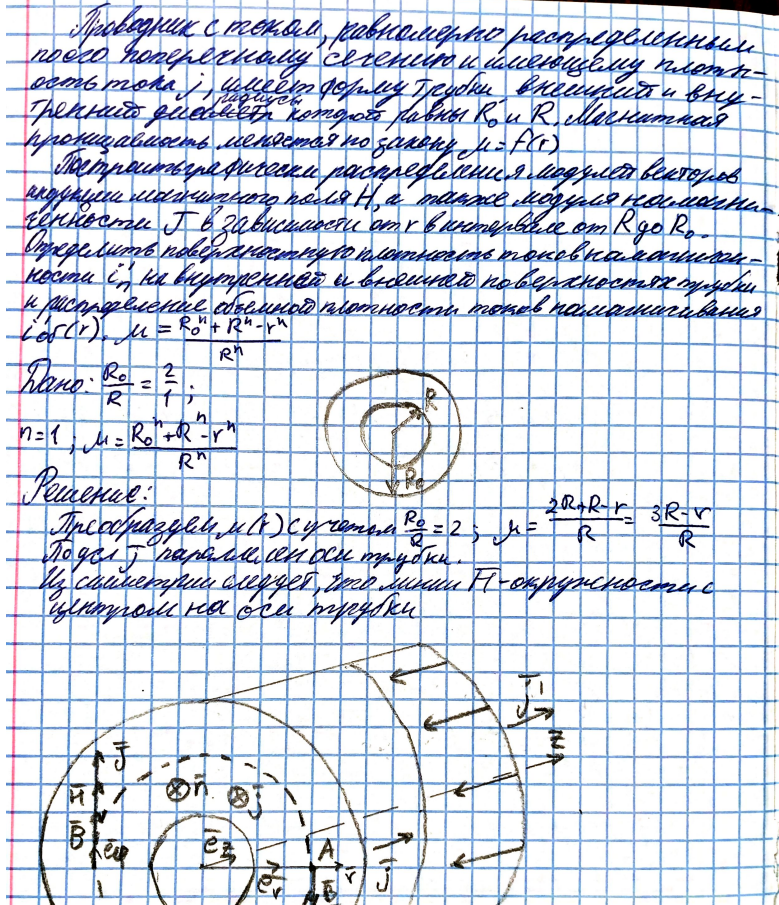 Проводник с током, равномерно распределенным
по его поперечному сечению и имеющему плотн-
ость тока j, имеет форму трубки внешний и вну-
тренний радиусы которой равны R₀ и R. Магнитная
проницаемость меняется по закону μ = f(r)
Построить графически распределения модулей векторов
индукции магнитного поля H, а также модуля намагни-
ченности J в зависимости от r в интервале от R до R₀.
Определить поверхностную плотность токов намагничен-
ности i'ₙ на внутренней и внешней поверхностях трубки
и распределение объемной плотности токов намагничивания
i'об(r). μ = (R₀ⁿ + Rⁿ - rⁿ) / Rⁿ
Дано: R₀/R = 2/1 ;
n=1 ; μ = (R₀ⁿ + Rⁿ - rⁿ) / Rⁿ
R
R₀
Решение:
Преобразуем μ(r) с учетом R₀/R = 2 ; μ = (2R+R-r)/R = (3R-r)/R
j параллелен оси трубки.
Из симметрии следует, что линии H̄ - окружности с
центром на оси трубки
j̄'
z̄
J̄
H̄
n̄
j̄
B̄
ē_φ
ē_z
A
ē_r
r̄
j̄
B̄